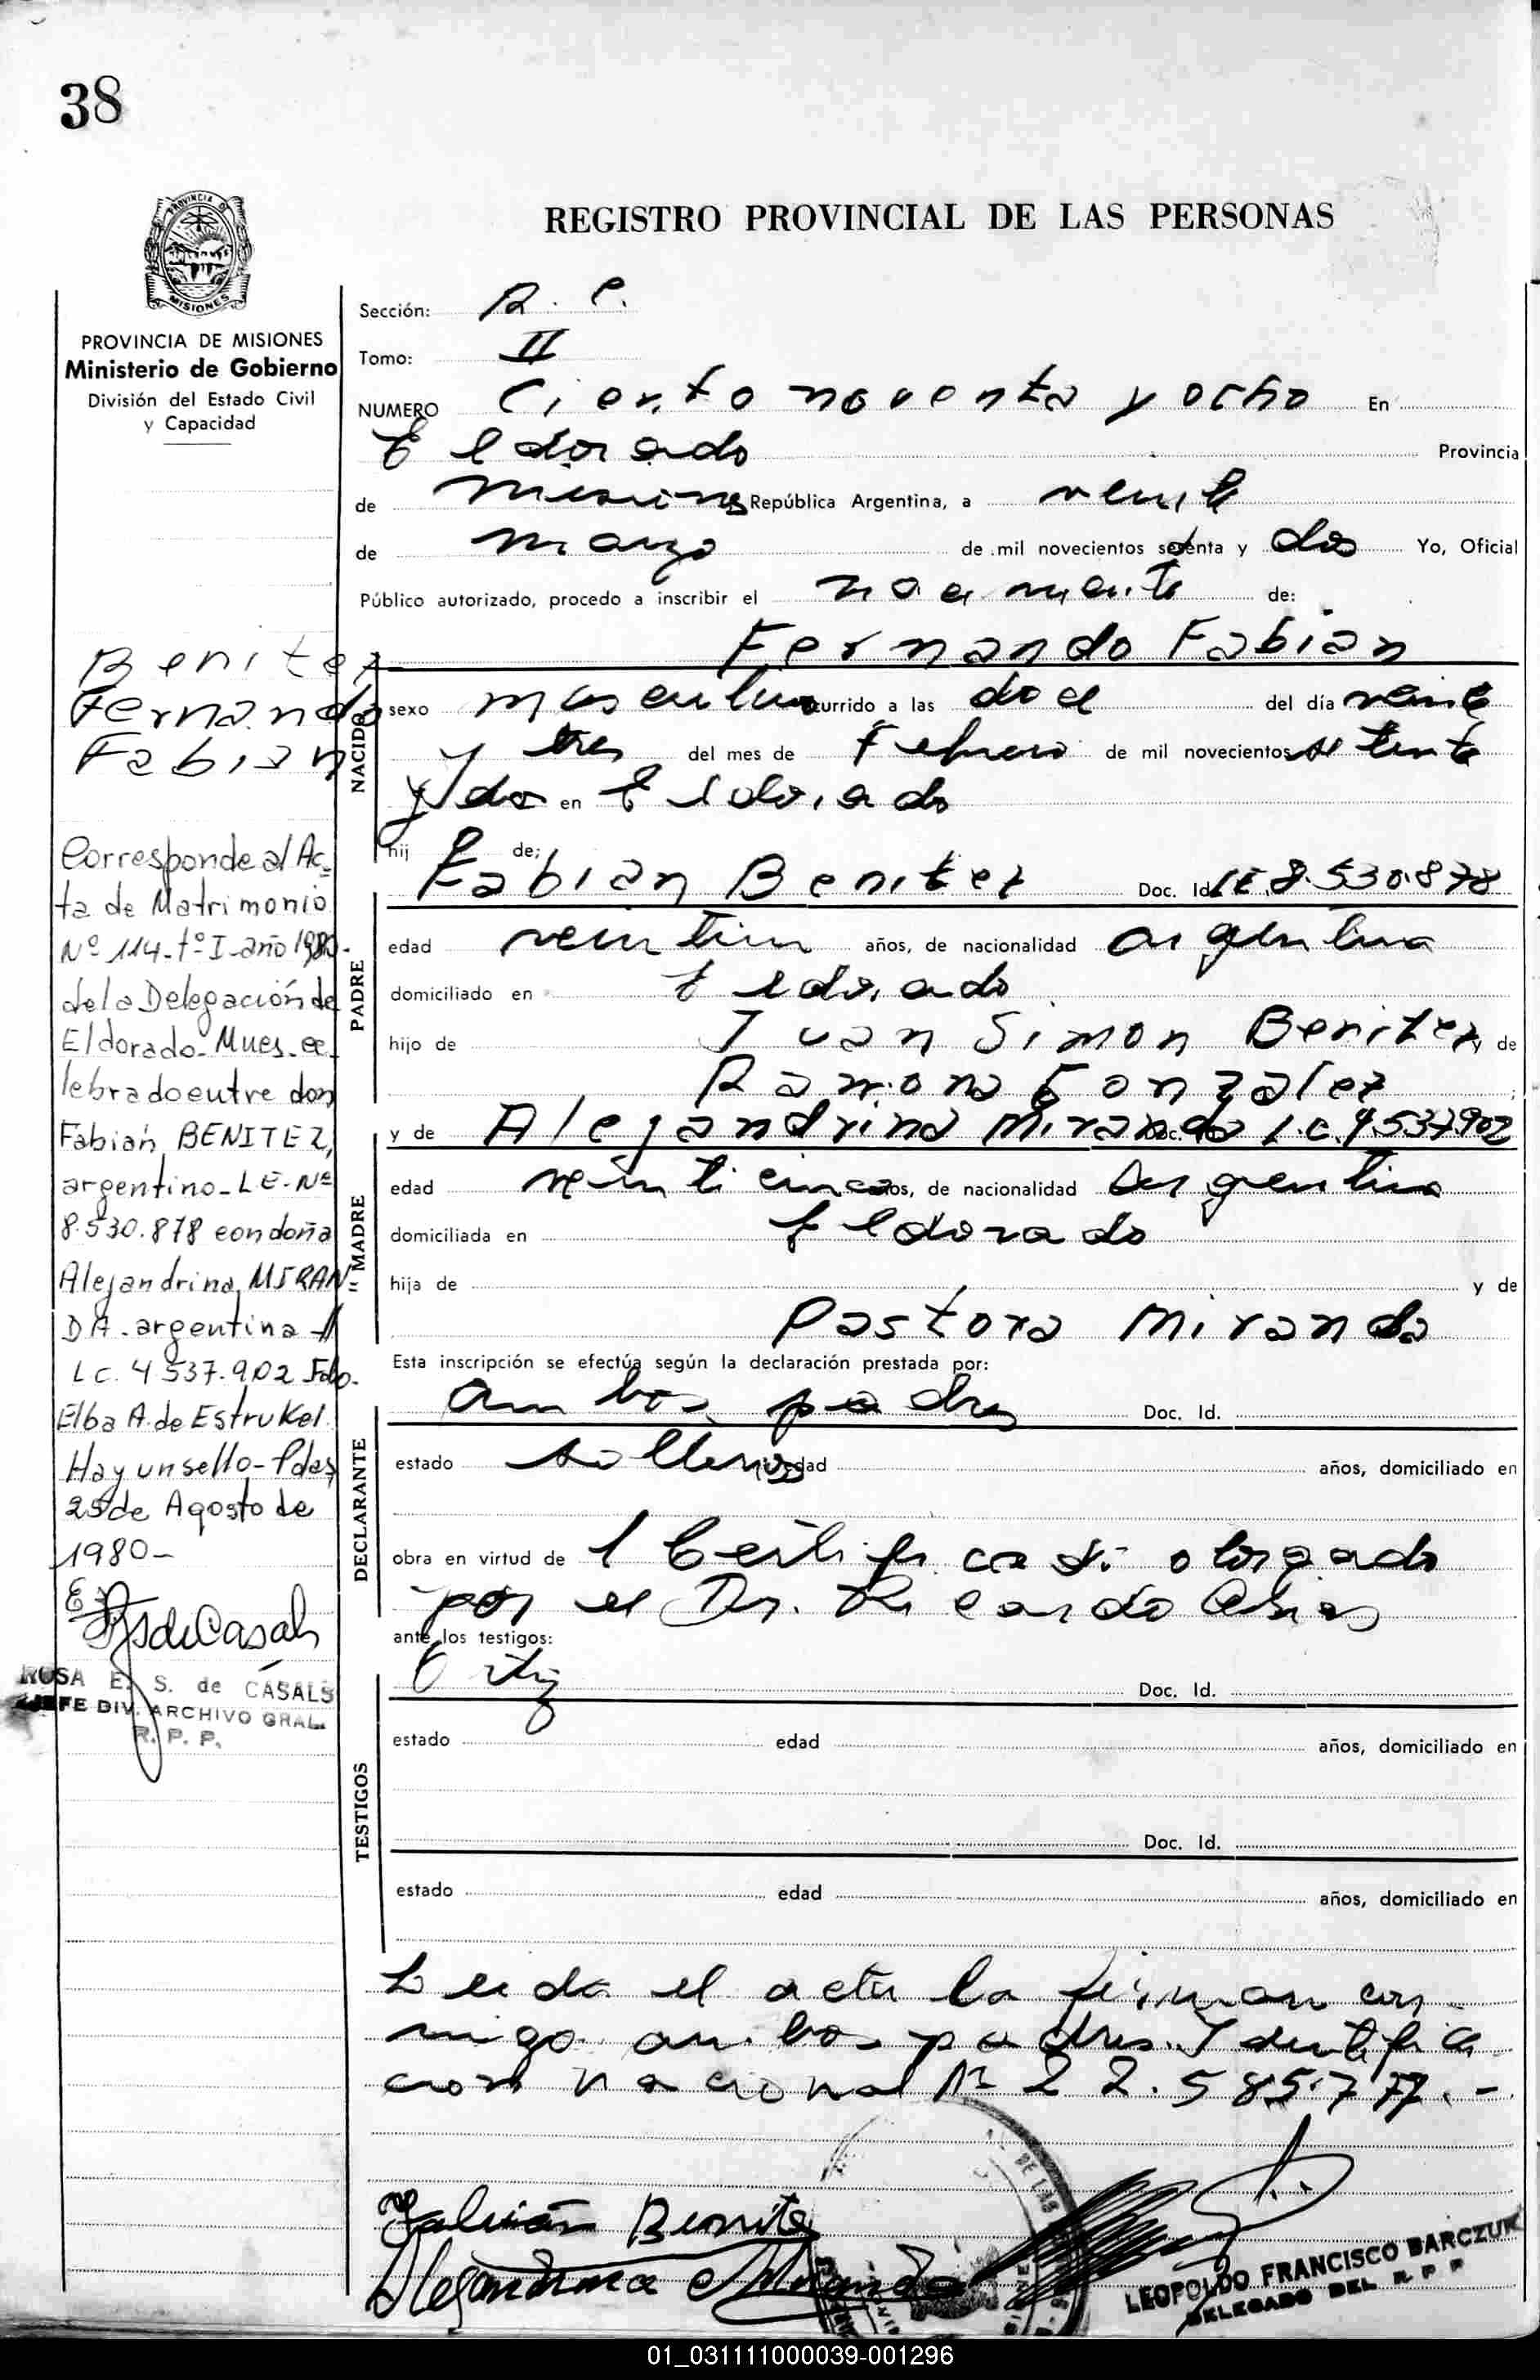 38
PROVINCIA DE MISIONES
Ministerio de Gobierno
División del Estado Civil
y Capacidad
REGISTRO PROVINCIAL DE LAS PERSONAS
Sección: R. P.
Tomo: II
NUMERO Ciento noventa y ocho En
Eldorado Provincia
de Misiones República Argentina, a veinte
de marzo de mil novecientos setenta y dos Yo, Oficial
Público autorizado, procedo a inscribir el nacimiento de:
Fernando Fabian
sexo masculino ocurrido a las doce del día veinte
y tres del mes de Febrero de mil novecientos setenta
y dos en Eldorado
hij o de;
Fabian Benitez Doc. Id. LE. 8.530.878
edad veintiun años, de nacionalidad argentina
domiciliado en Eldorado
hijo de Juan Simon Benitez y de
Ramona Gonzalez
y de Alejandrina Miranda Doc. Id. L.C. 4537902
edad veinticinco años, de nacionalidad argentina
domiciliada en Eldorado
hija de y de
Pastora Miranda
Esta inscripción se efectúa según la declaración prestada por:
ambos padres Doc. Id.
estado solteros edad años, domiciliado en
obra en virtud de 1 Certificado otorgado
por el Dr. Ricardo
ante los testigos:
Ortiz Doc. Id.
estado edad años, domiciliado en
Doc. Id.
estado edad años, domiciliado en
Leida el acta la firman con-
migo ambos padres. Identifica
cion nacional Nº 22.585.777.-
NACIDO
PADRE
MADRE
DECLARANTE
TESTIGOS
Benitez
Fernando
Fabian
Corresponde al Ac-
ta de Matrimonio
Nº 114-tº I-año 1980-
de la Delegación de
Eldorado-Mnes. ce
lebrado entre don
Fabián BENITEZ,
argentino-LE-Nº
8.530.878 con doña
Alejandrina MIRAN
DA-argentina-
LC. 4.537.902 Fdo.
Elba A. de Estrukel.
Hay un sello-Pdas,
25 de Agosto de
1980-
RSdeCasals
ROSA E. S. de CASALS
JEFE DIV. ARCHIVO GRAL.
R. P. P.
Fabián Benitez
Alejandrina Miranda
LEOPOLDO FRANCISCO BARCZUK
DELEGADO DEL R P P
01_031111000039-001296